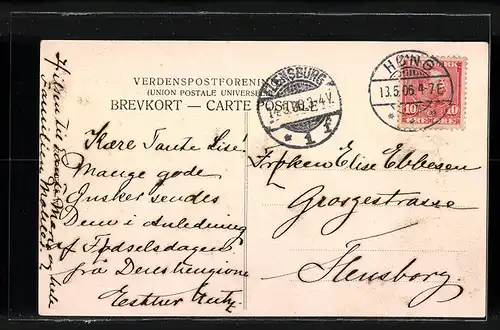 VERDENSPOSTFORENIN
(UNION POSTALE UNIVERSE
BREVKORT — CARTE POST
FLENSBURG
1 f
HØNG
13.5.06. 4-7E
10 10
Kære Tante Lise!
Mange gode
Ønsker sendes
Dem i Anledning
af Fødselsdagen
fra Deres hengivne
Esther
Frøken Elise Ebbesen
Grosgestrasse
Flensborg.
Hilsen til
Marie og hele
Familien